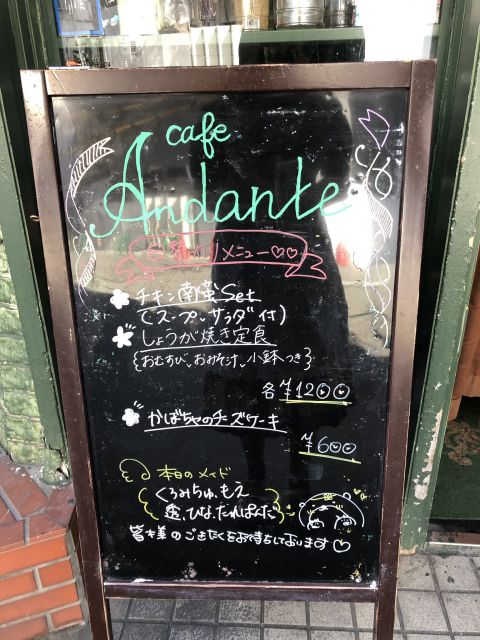 cafe
Andante
メニュー♡♡
チキン南蛮Set
(スープ、サラダ付)
しょうが焼き定食
{おむすび、おみそ汁、小鉢つき}
各¥1200
かぼちゃのチーズケーキ
¥600
本日のメイド
くろみちゅ、もえ
ひな、たれぱんだ
皆様のごきたくをお待ちしております♡